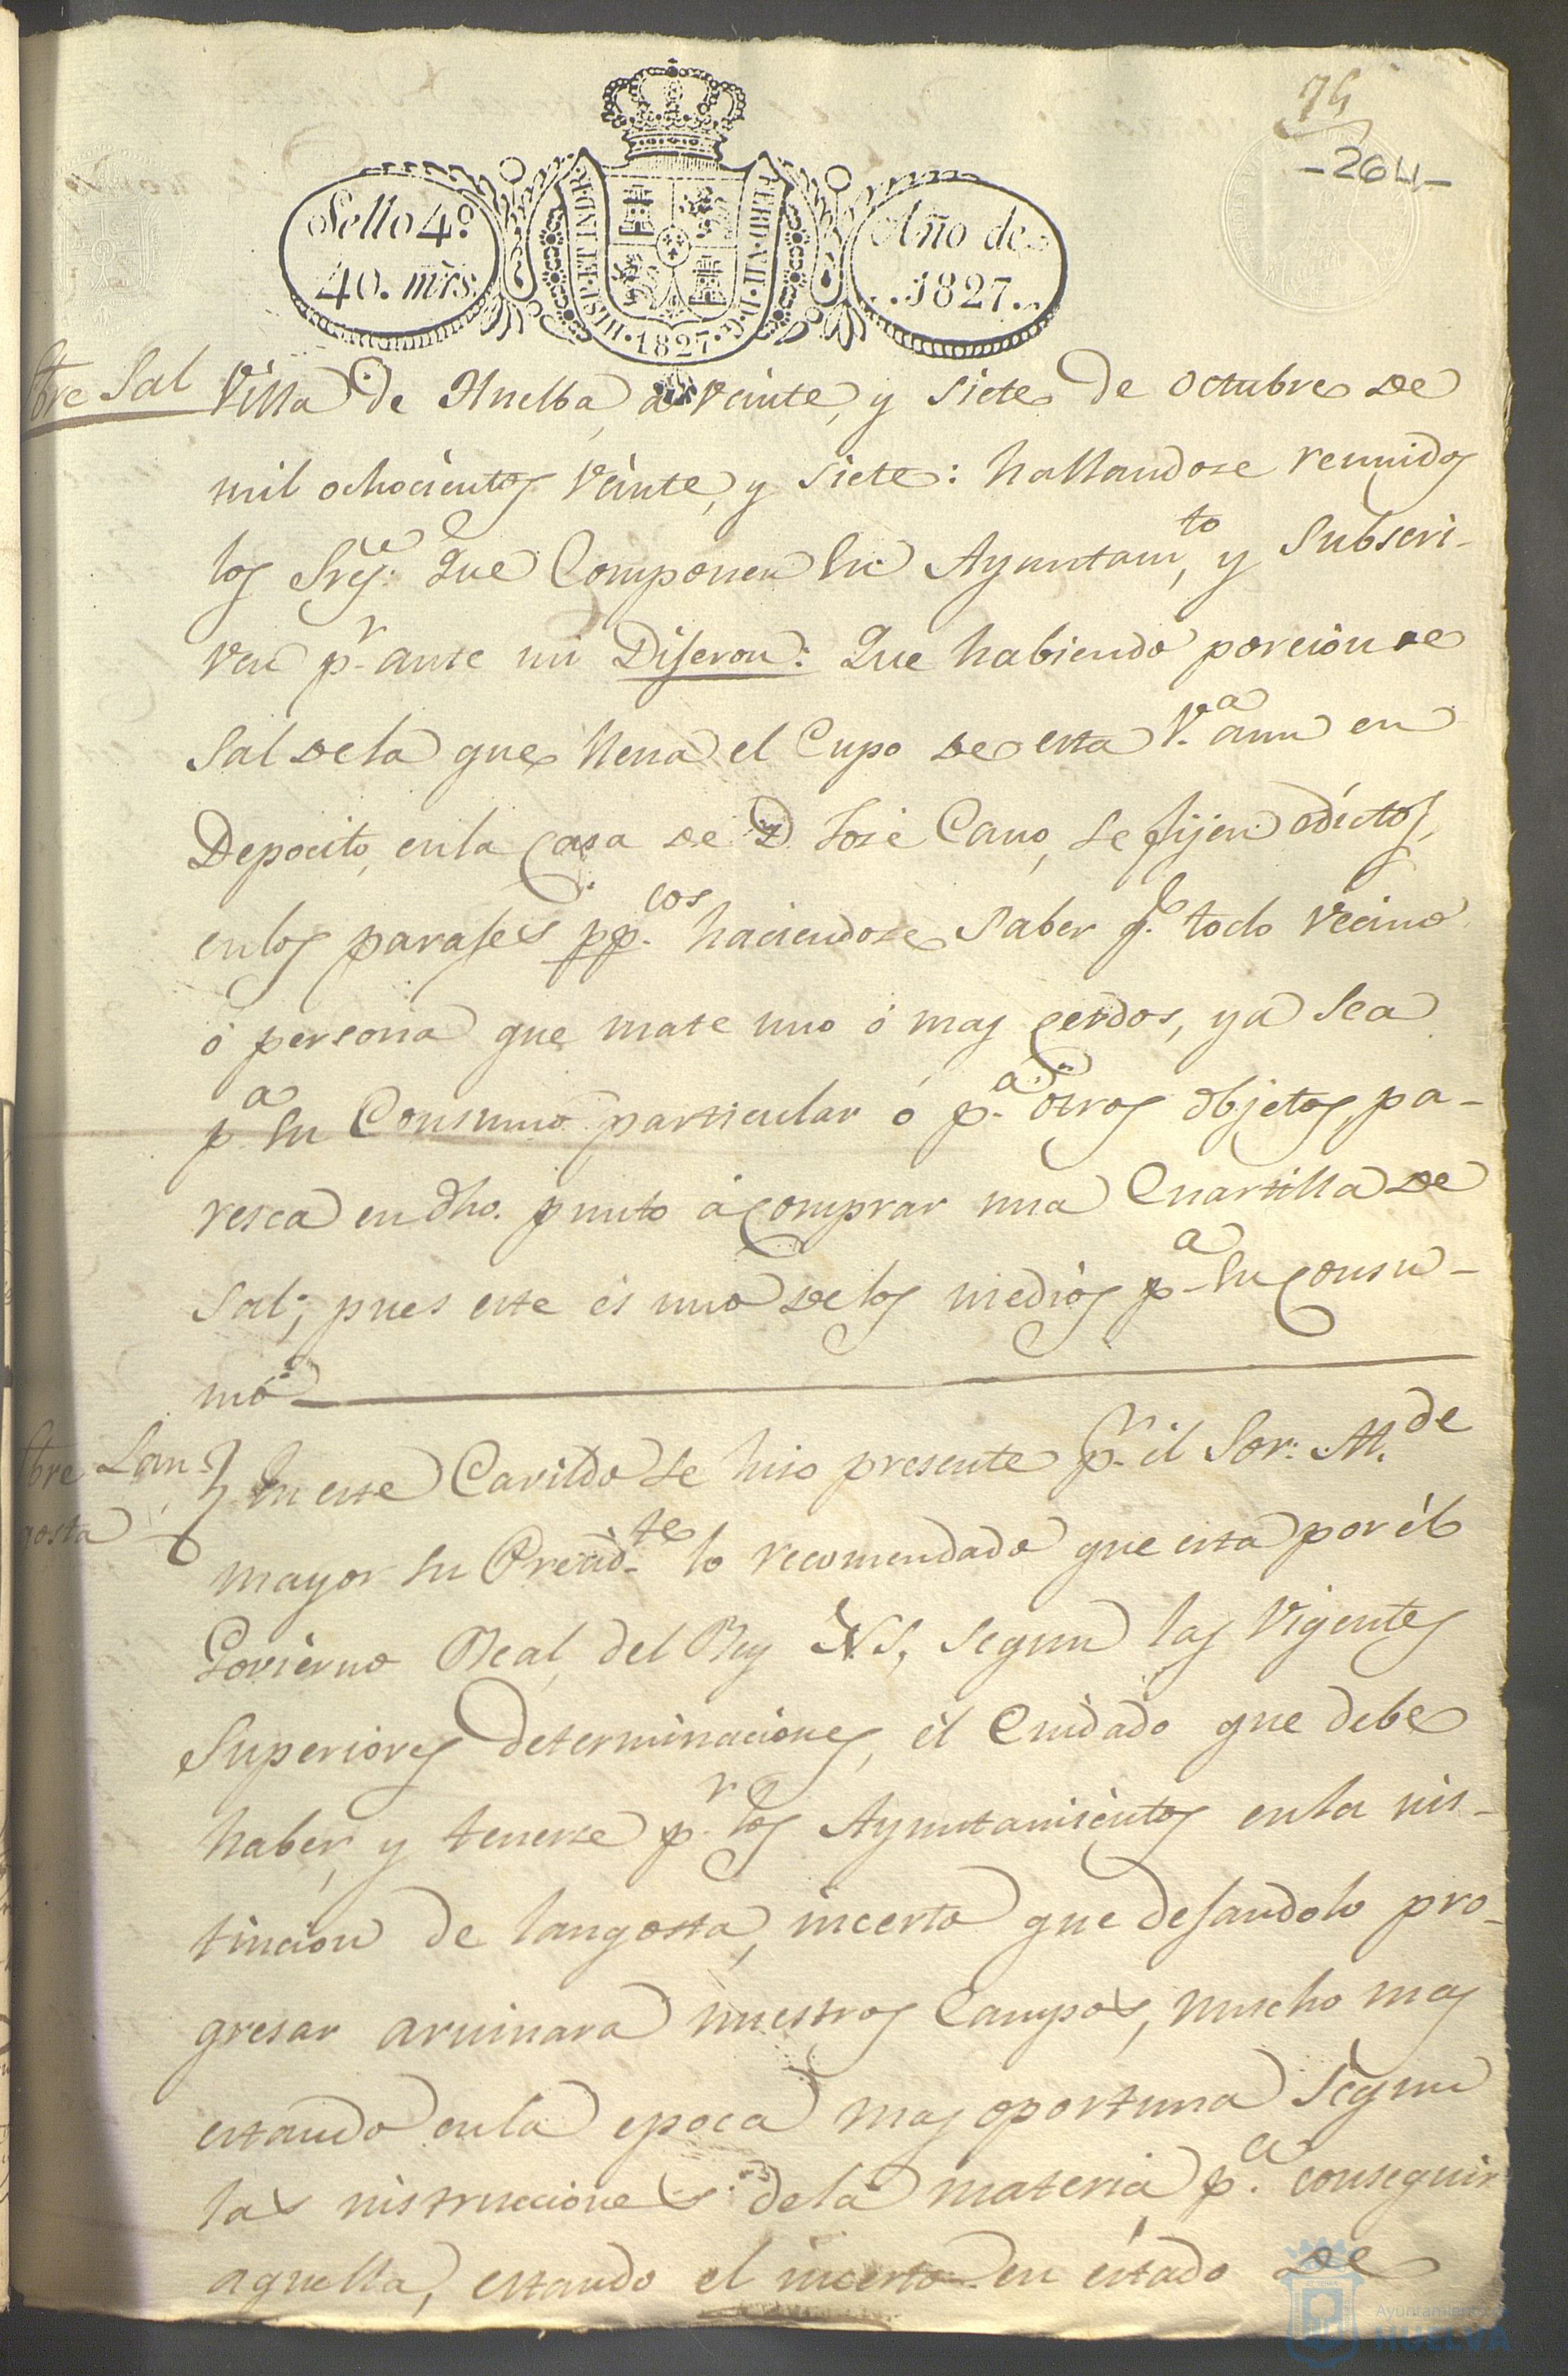 75
-264-
Sello 4º
40. mrs.
HISP. ET IND. R.
FERD. VII. D. G.
1827
Año de
1827.
bre Sal
Villa de Huelba, a veinte, y siete de octubre de
mil ochocientos veinte, y siete: hallandose reunidos
los Sres. que Componen su Ayuntamto, y subscri-
ven pr. ante mi Diferon: Que habiendo porcion de
Sal dela que llena el Cupo de esta V.a aun en
Depocito, enla Casa de D José Cano, se fijen edictos,
enlos parages ppcos. haciendose saber qe. todo vecino
ó persona que mate uno ó mas cerdos, ya sea
pa su Consumo particular ó pa. otros objetos, pa-
resca en dho. punto á comprar una Cuartilla de
Sal; pues este és uno delos medios pa su consu-
mo
bre Lan-
gosta
En este Cavildo se hiso presente pr. él Sor. Al.de
mayor su Presid.te lo recomendado que esta por él
Govierno Real, del Rey N S, segun las vigentes
Superiores determinaciones, él Cuidado que debe
haber, y tenerse pr. los Ayuntamientos enla ins-
tincion de langosta, incerto que dejandolo pro-
gresar aruinara nuestros Campos, mucho mas
estando enla epoca mas oportuna segun
las instrucciones dela materia pa. conseguir
aquella, estando el incerto en éstado de
Ayuntamiento de
HUELVA